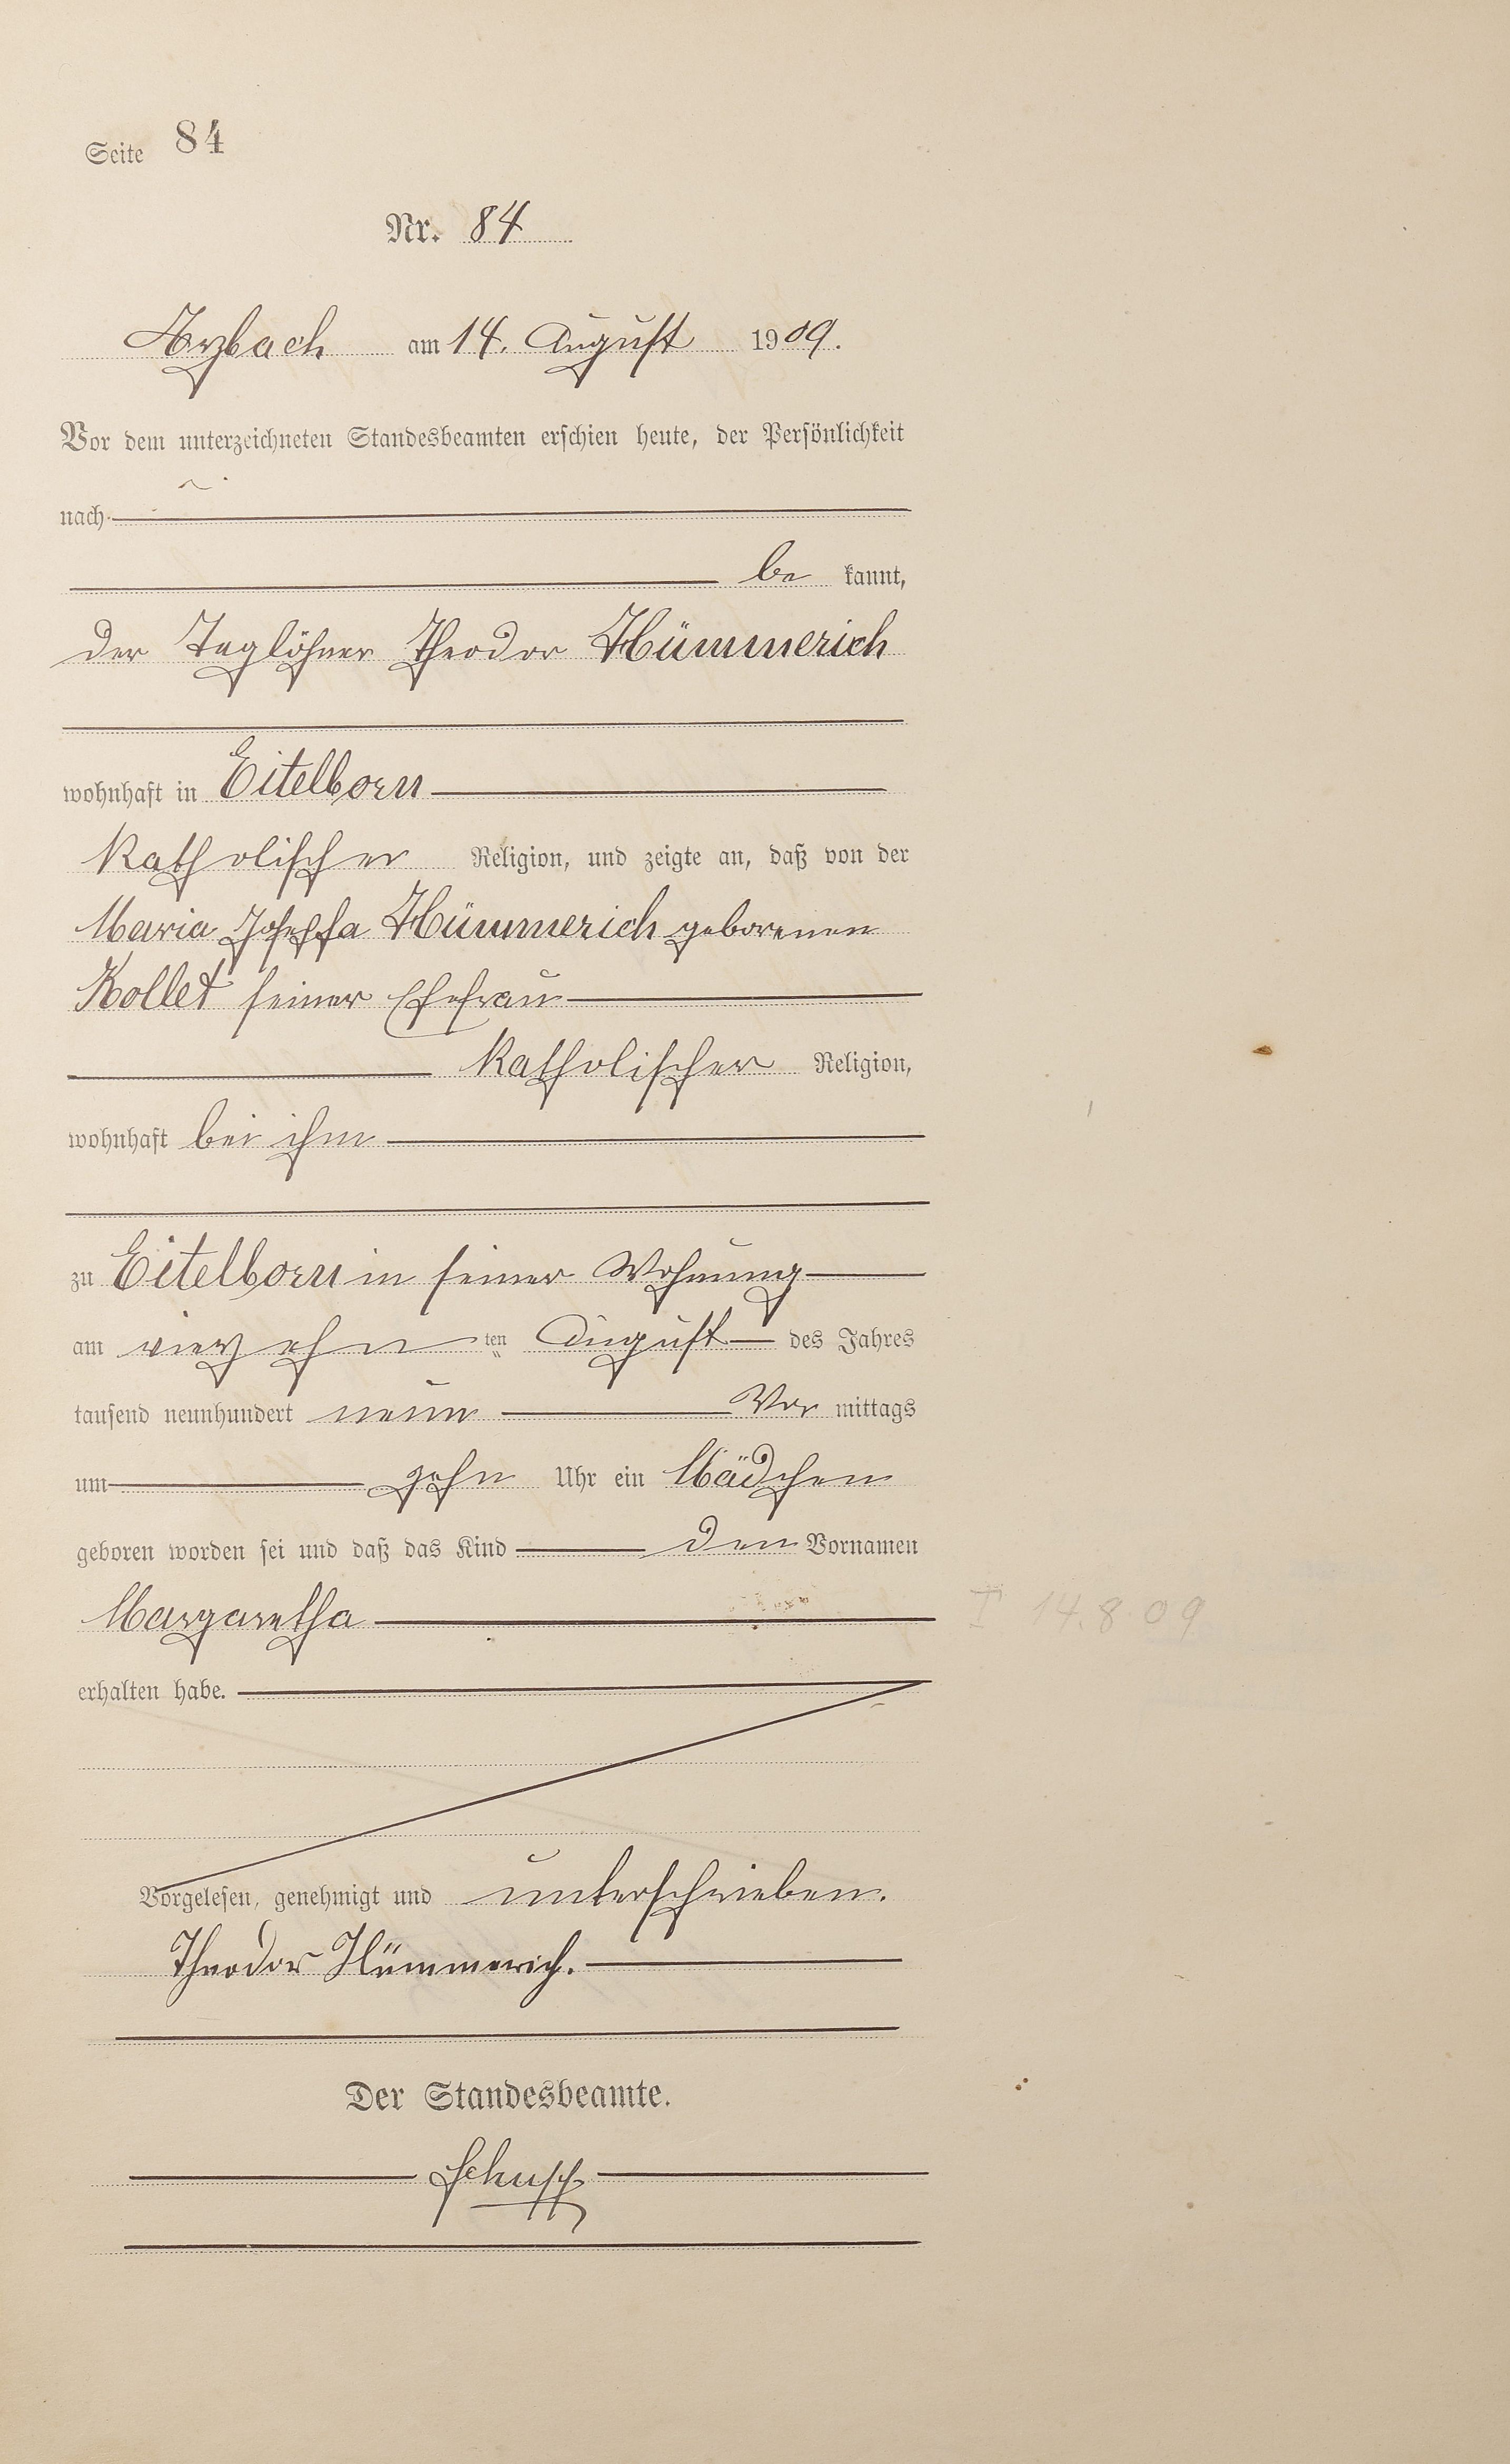 Seite 84
Nr. 84
Arzbach am 14. August 1909.
Vor dem unterzeichneten Standesbeamten erschien heute, der Persönlichkeit
nach
be kannt,
der Taglöhner Theodor Hümmerich
wohnhaft in Eitelborn
katholischer Religion, und zeigte an, daß von der
Maria Josepha Hümmerich geborenen
Kollet seiner Ehefrau
katholischer Religion,
wohnhaft bei ihm
zu Eitelborn in seiner Wohnung
am vierzehn ten August des Jahres
tausend neunhundert neun Vor mittags
um zehn Uhr ein Mädchen
geboren worden sei und daß das Kind den Vornamen
Margaretha
T 14.8.09
erhalten habe.
Vorgelesen, genehmigt und unterschrieben.
Theodor Hümmerich.
Der Standesbeamte.